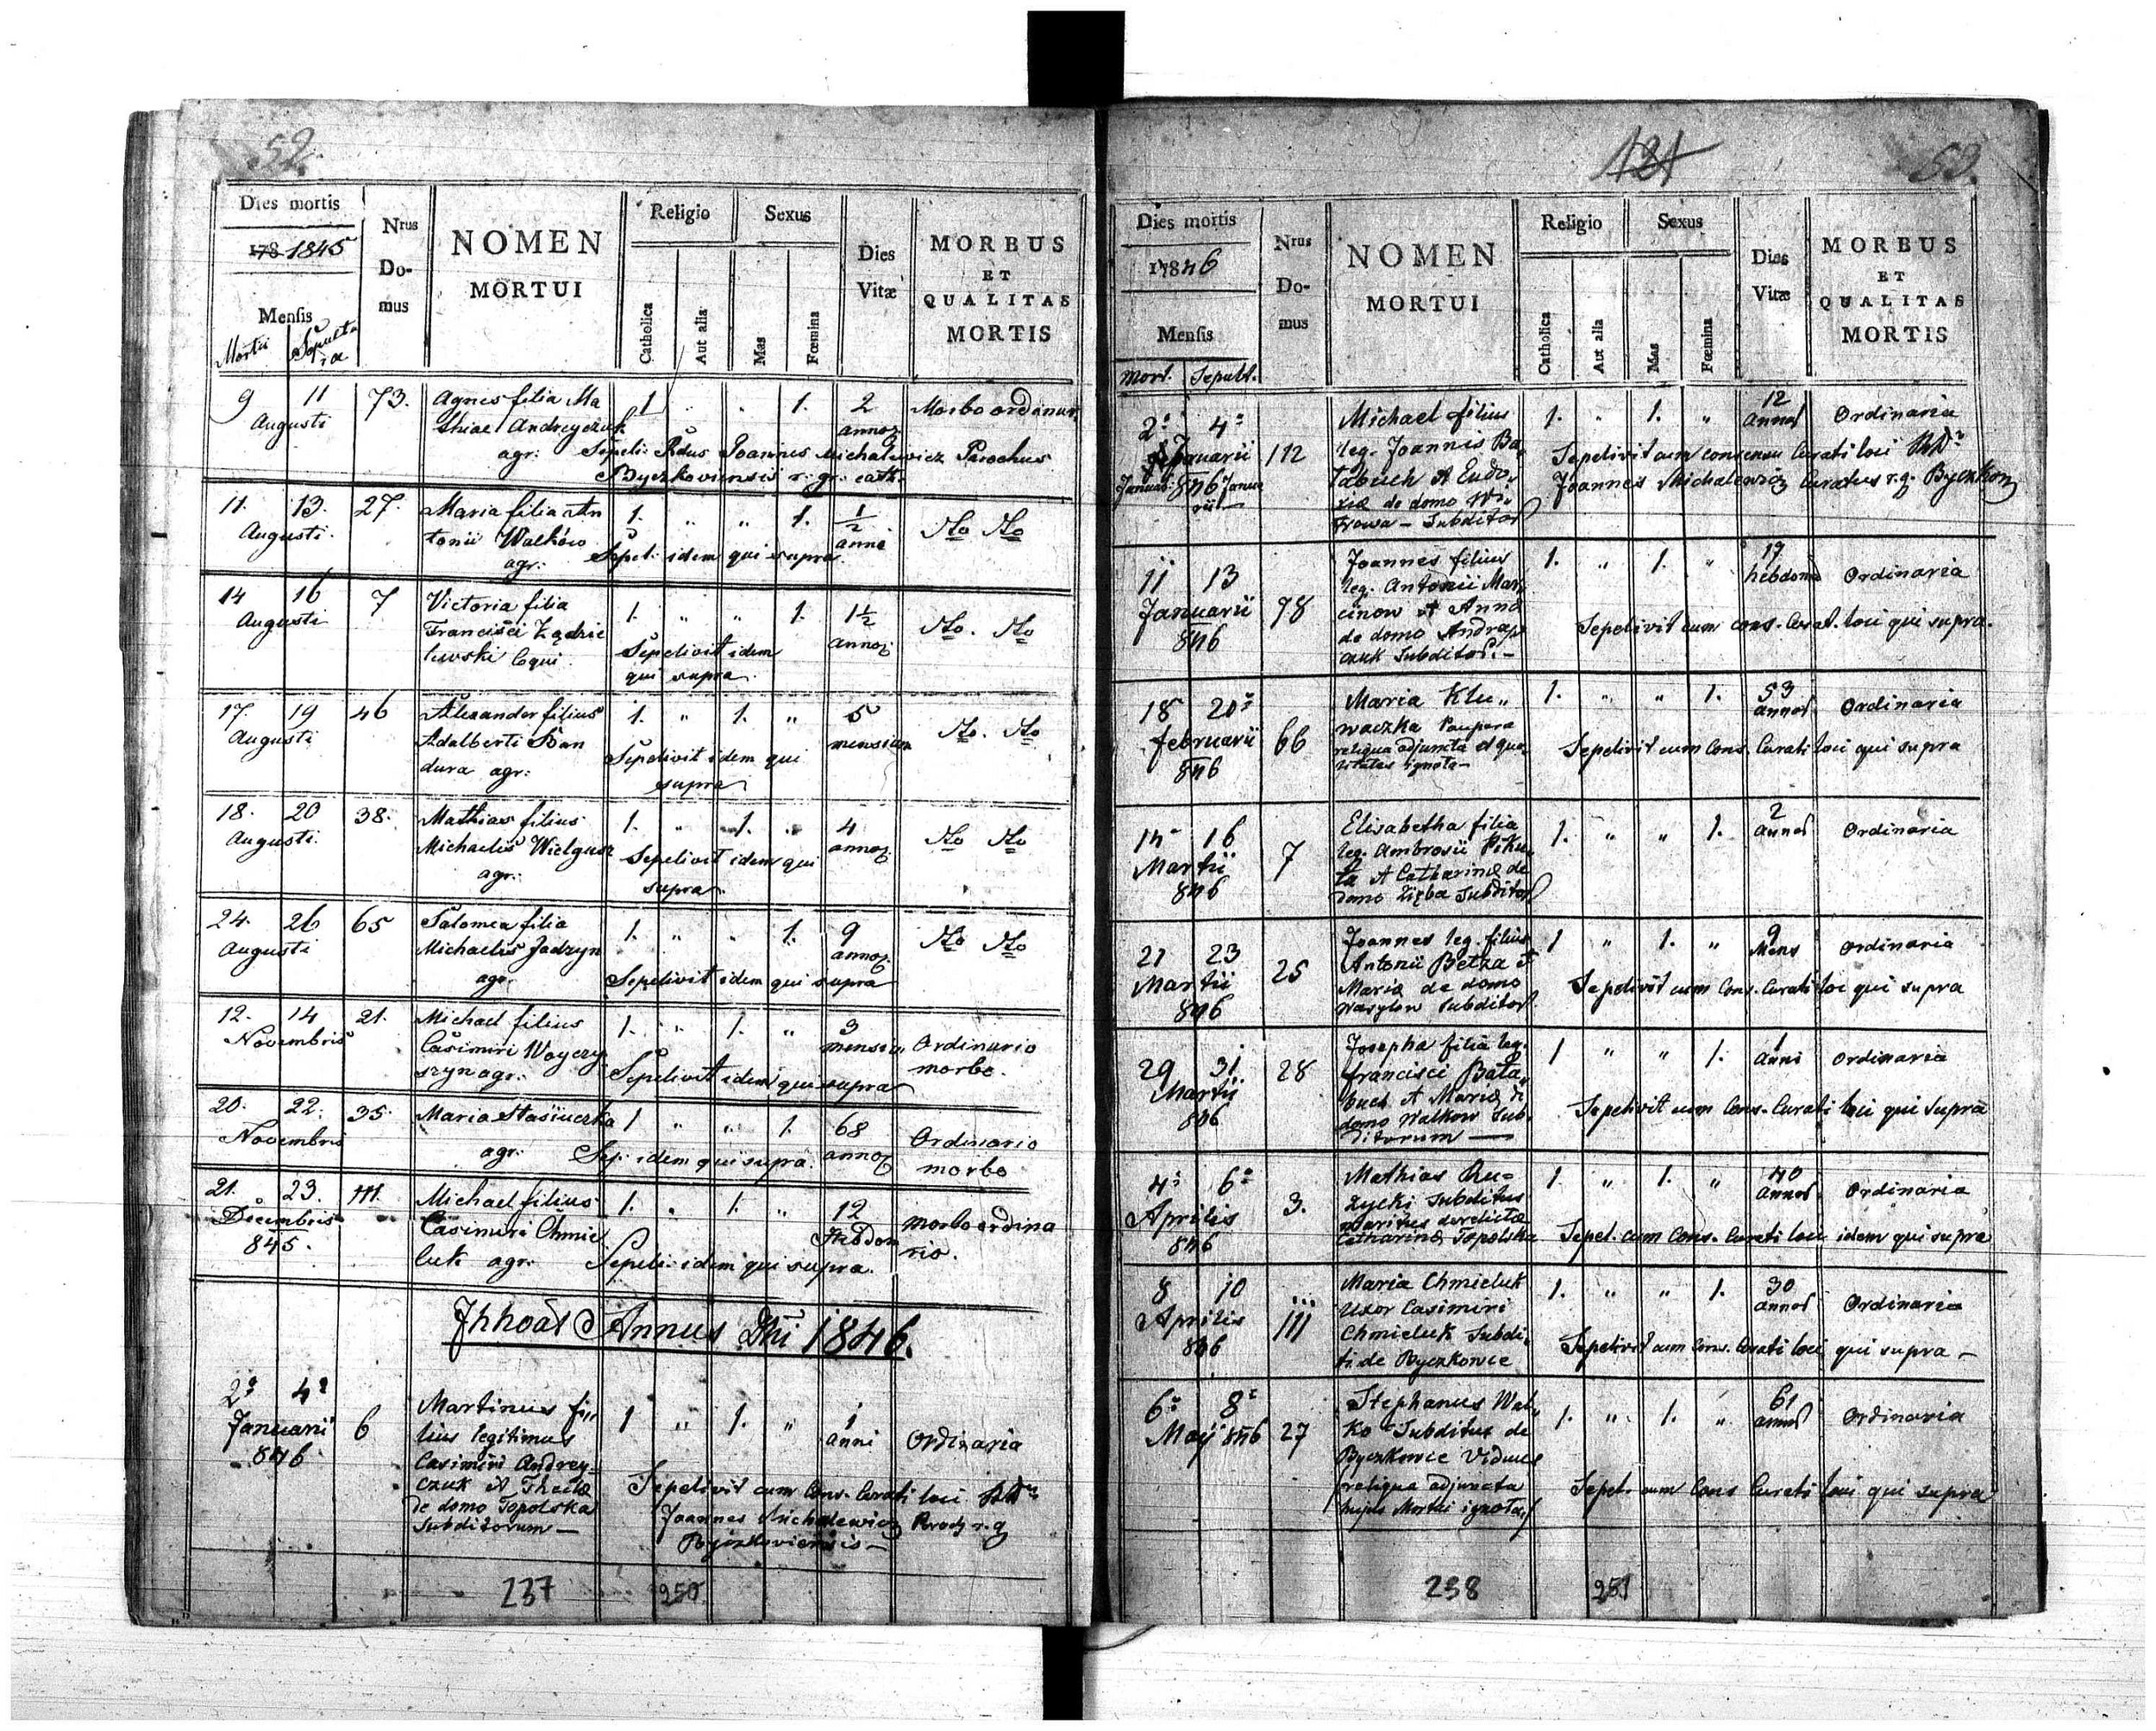 52.
Dies mortis
178 1845
Mensis
Mortis Sepultu
ræ
Nrus
Do-
mus
NOMEN
MORTUI
Religio
Catholica
Aut alia
Sexus
Mas
Fœmina
Dies
Vitæ
MORBUS
ET
QUALITAS
MORTIS
9 11 73. Agnes filia Ma 1 " " 1. 2 Morbo ordinar.
Augusti thiae Andreyczuk annor.
agr: Sepeli: Rdus Joannes Michalewicz Parochus
Byczkoviensis r. gr. cath.
11. 13. 27. Maria filia An 1. " " 1. 1/2 Mo Mo
Augusti. tonii Walków anni
agr: Sepel: idem qui supra.
14 16 7 Victoria filia 1. " " 1. 1 1/2 Mo. Mo
Augusti Francisci annor.
lewski Sepelivit idem
qui supra.
17. 19 46 Alexander filius 1. " 1. " 5 Mo. Mo
Augusti Adalberti Ban mensium
dura agr: Sepelivit idem qui
supra
18. 20 38. Mathias filius 1. " 1. " 4 Mo Mo
Augusti. Michaelis Wielgusz annor.
agr: Sepelivit idem qui
supra
24. 26 65 Salomea filia 1. " " 1. 9 Mo Mo
Augusti Michaelis Jadzyn annor.
agr. Sepelivit idem qui supra
12. 14 21. Michael filius 1. " 1. " 3 Ordinario
Novembris Casimiri Woyczy mensiu. morbo.
szyn agr. Sepelivit idem qui supra
20. 22. 35. Maria Stasiuczka 1 " " 1. 68 Ordinario
Novembris agr. Sep: idem qui supra. annor morbo
21. 23. 111. Michael filius 1. " 1. " 12 morbo ordina
Decembris Casimiri Chmie Hebdom rio.
845. luk agr: Sepeli: idem qui supra.
Annus Dni 1846.
2 4 6 Martinus fi" 1 " 1. " 1 Ordinaria
Januarii lius legitimus anni
846 Casimiri Andrey-
czuk et Theclæ
de domo Topolska
Subditorum —
Sepelivit cum Cons. Curati loci
Joannes Michalewicz Paroch r. g
Byczkoviensis —
237 250
121 53.
Dies mortis
17846
Mensis
Mort. Sepult.
Nrus
Do-
mus
NOMEN
MORTUI
Religio
Catholica
Aut alia
Sexus
Mas
Fœmina
Dies
Vitæ
MORBUS
ET
QUALITAS
MORTIS
2 4 112 Michael filius 1. " 1. " 12 Ordinaria
Januarii leg. Joannis Ba, annor
846 tabuch et Eudo,
xiæ de domo Wi,
trowa — Subditor
Sepelivit cum consensu Curati loci
Joannes Michalewicz Curatus r. g. Byczkow
11 13 98 Joannes filius 1. " 1. " 19 Ordinaria
Januarii leg. Antonii Mar, hebdom
846 cinow et Anna
de domo Andrey
czuk Subditor. —
Sepelivit cum cons. Curat. loci qui supra.
18 20 66 Maria Klu" 1. " " 1. 53 Ordinaria
februarii waczka Paupera annor
846 reliqua adjuncta et qua
litates ignota —
Sepelivit cum Cons. Curati loci qui supra
14 16 7 Elisabetha filia 1. " " 1. 2 Ordinaria
Martii leg. Ambrosii Piku, annor
846 la et Catharinæ de
domo Zięba Subditor
21 23 25 Joannes leg. filius 1 " 1. " 9 Ordinaria
Martii Antonii Betza et Mens
846 Maria de domo
Wasylow Subditor
Sepelivit cum Cons. Curati loci qui supra
29 31 28 Josepha filia leg. 1 " " 1. 1 Ordinaria
Martii francisci Bata, anni
846 buch et Maria d
domo Walkow Sub.
ditorum —
Sepelivit cum Cons. Curati loci qui supra
4 6 3. Mathias Ru= 1. " 1. " 40 Ordinaria
Aprilis życki Subditus annor
846 maritus derelictæ
Catharinæ Topolska
Sepel. cum Cons. Curati loci idem qui supra
8 10 111 Maria Chmieluk 1. " " 1. 30 Ordinaria
Aprilis Uxor Casimiri annor
846 Chmieluk Subdi,
ti de Byczkowce
Sepelivit cum Cons. Curati loci qui supra —
6 8 27 Stephanus Wal" 1. " 1. " 61 Ordinaria
Maij 846 ko Subditus de annor
Byczkowce Viduus
reliqua adjuncta
hujus Mortui ignota
Sepel. cum Cons Curati loci qui supra
238 251